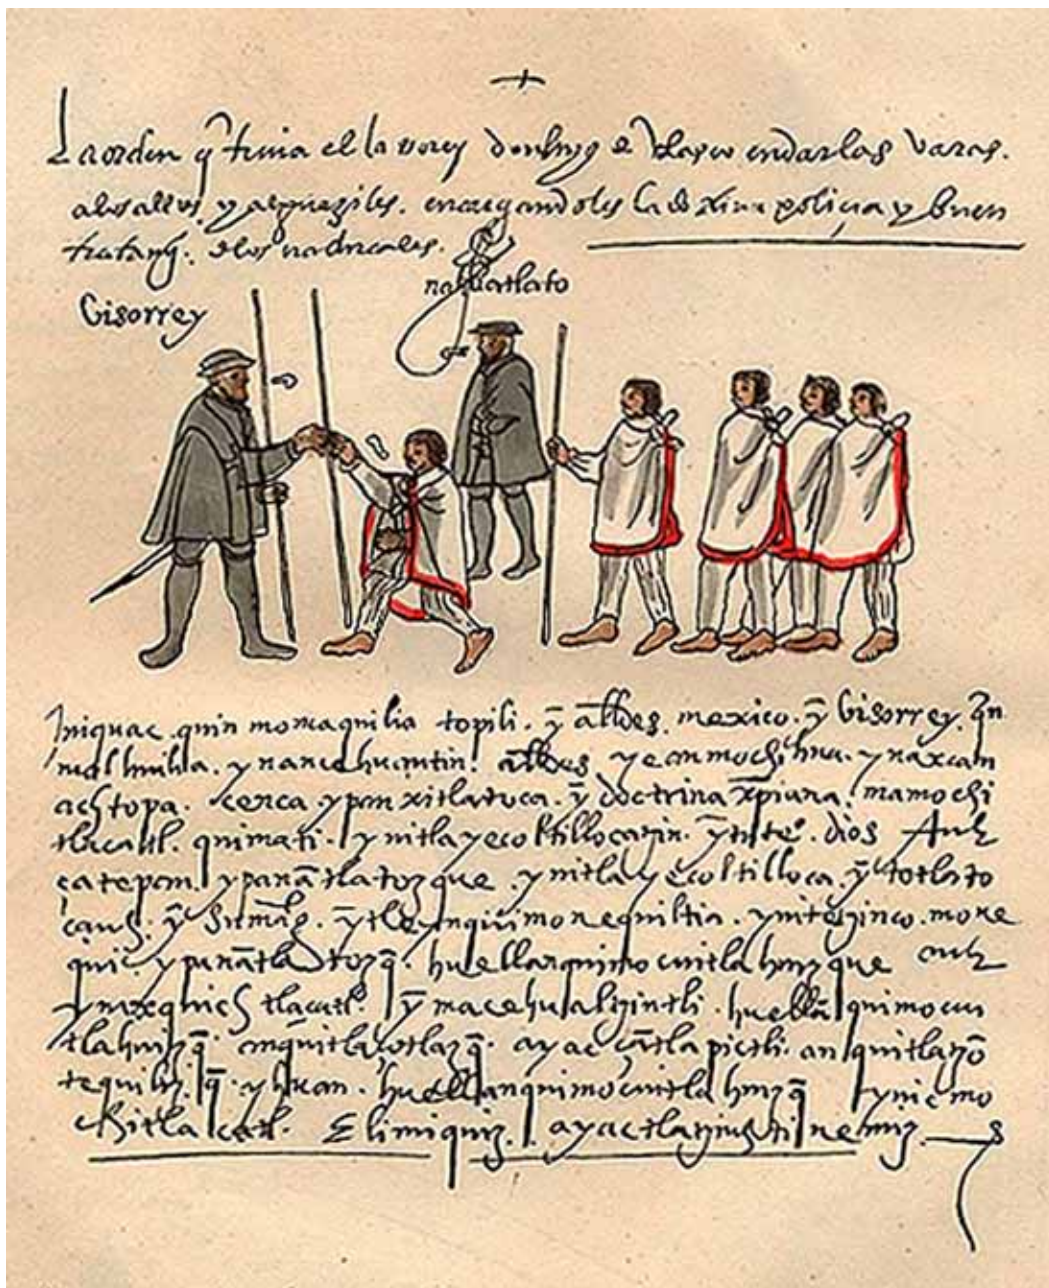 La orden q̃ tenia el la vorey don luys de velasco en dar las varas.
a los alldes. y alguaziles. encargandoles la doxina policia y buen
tratamyº. de los naturales.
nahuatlato
Visorrey
Yniquac quin momaquilia topili. ȳ alldes. mexico. ȳ Visorrey. qn
nalhuilia. y nanmehuantin. alldes y e an mochihua. ynaxcan
achtopa. cenca. ypan xitlatoca. ȳ doctrina xp̄iana. ma mochi
tlacatl. quimati. ynitlayecoltillocatzin. ȳ tote.º dios Auh
çatepan. ypan ātlatozque. ynitlayecoltilloca. ȳ totlato
cauh. ȳ Su mag. ȳ tleynquimonequiltia. ynitetzinco. mone
qui. ypan ātlatozq̄. huellanquimocuitlahuizque auh
ynixquich tlacatl. ȳ macehualtzintli. huellā quimocui
tlahuizq̄. anquitlaçotlazq̄. ayac çātlapictli. anquitlatzō
tequiliz q̄. yhuan. huellanquimocuitlahuizq̄ ynic mo
chitlacatl. Elimiquiz. ayac tlatziuhtinemiz.